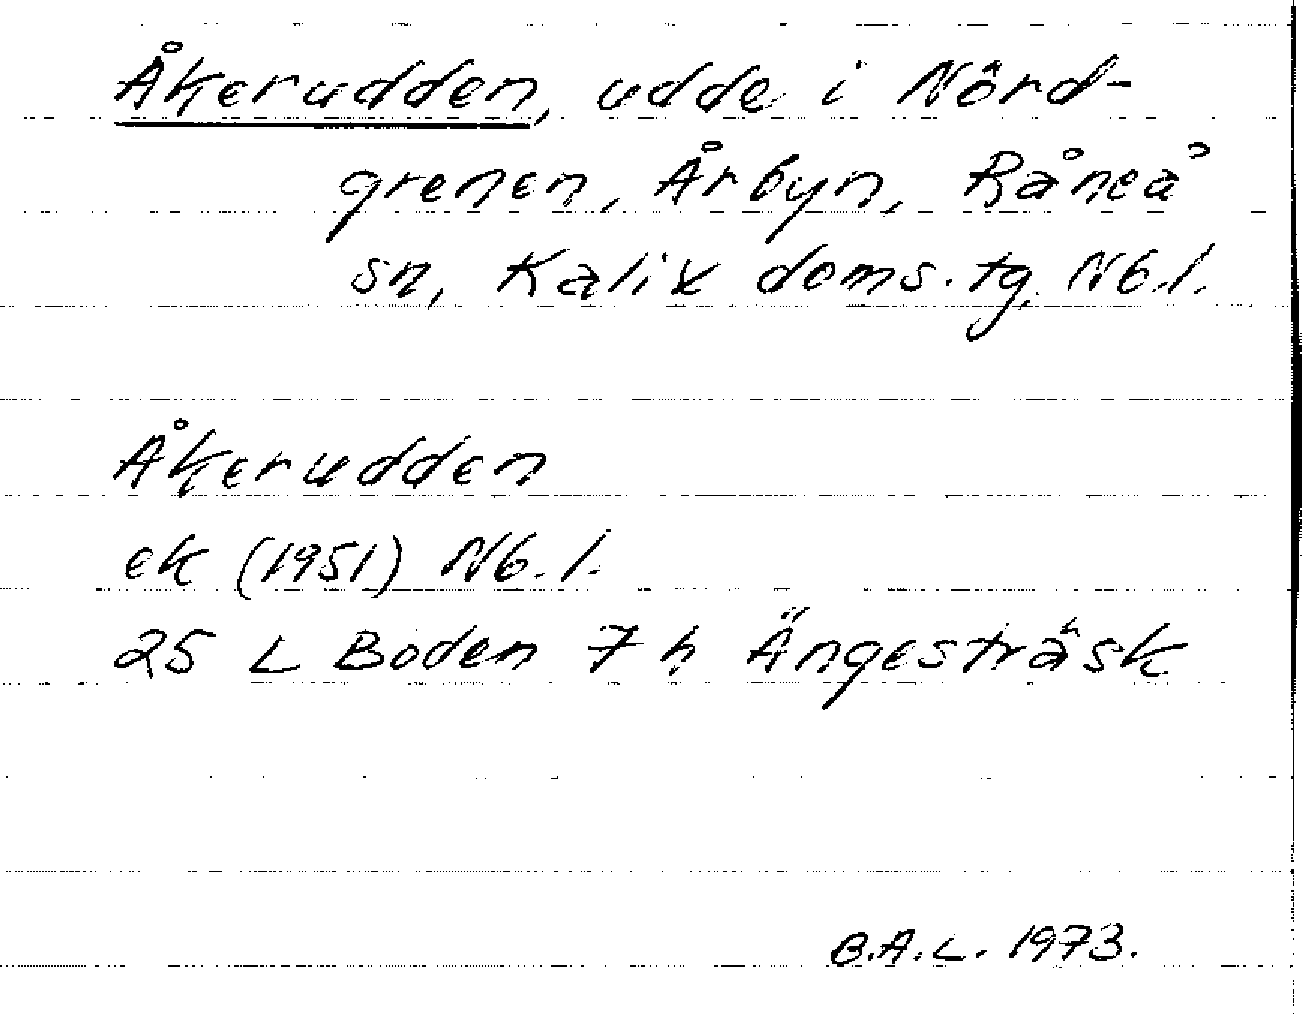 Åkerudden, udde i Nörd-
grenen, Årbyn, Råneå
sn, Kalix doms. tg. Nb.l.
Åkerudden
ek (1951) Nb. l.
25 L Boden 7 h Ängesträsk
B.A.L. 1973.